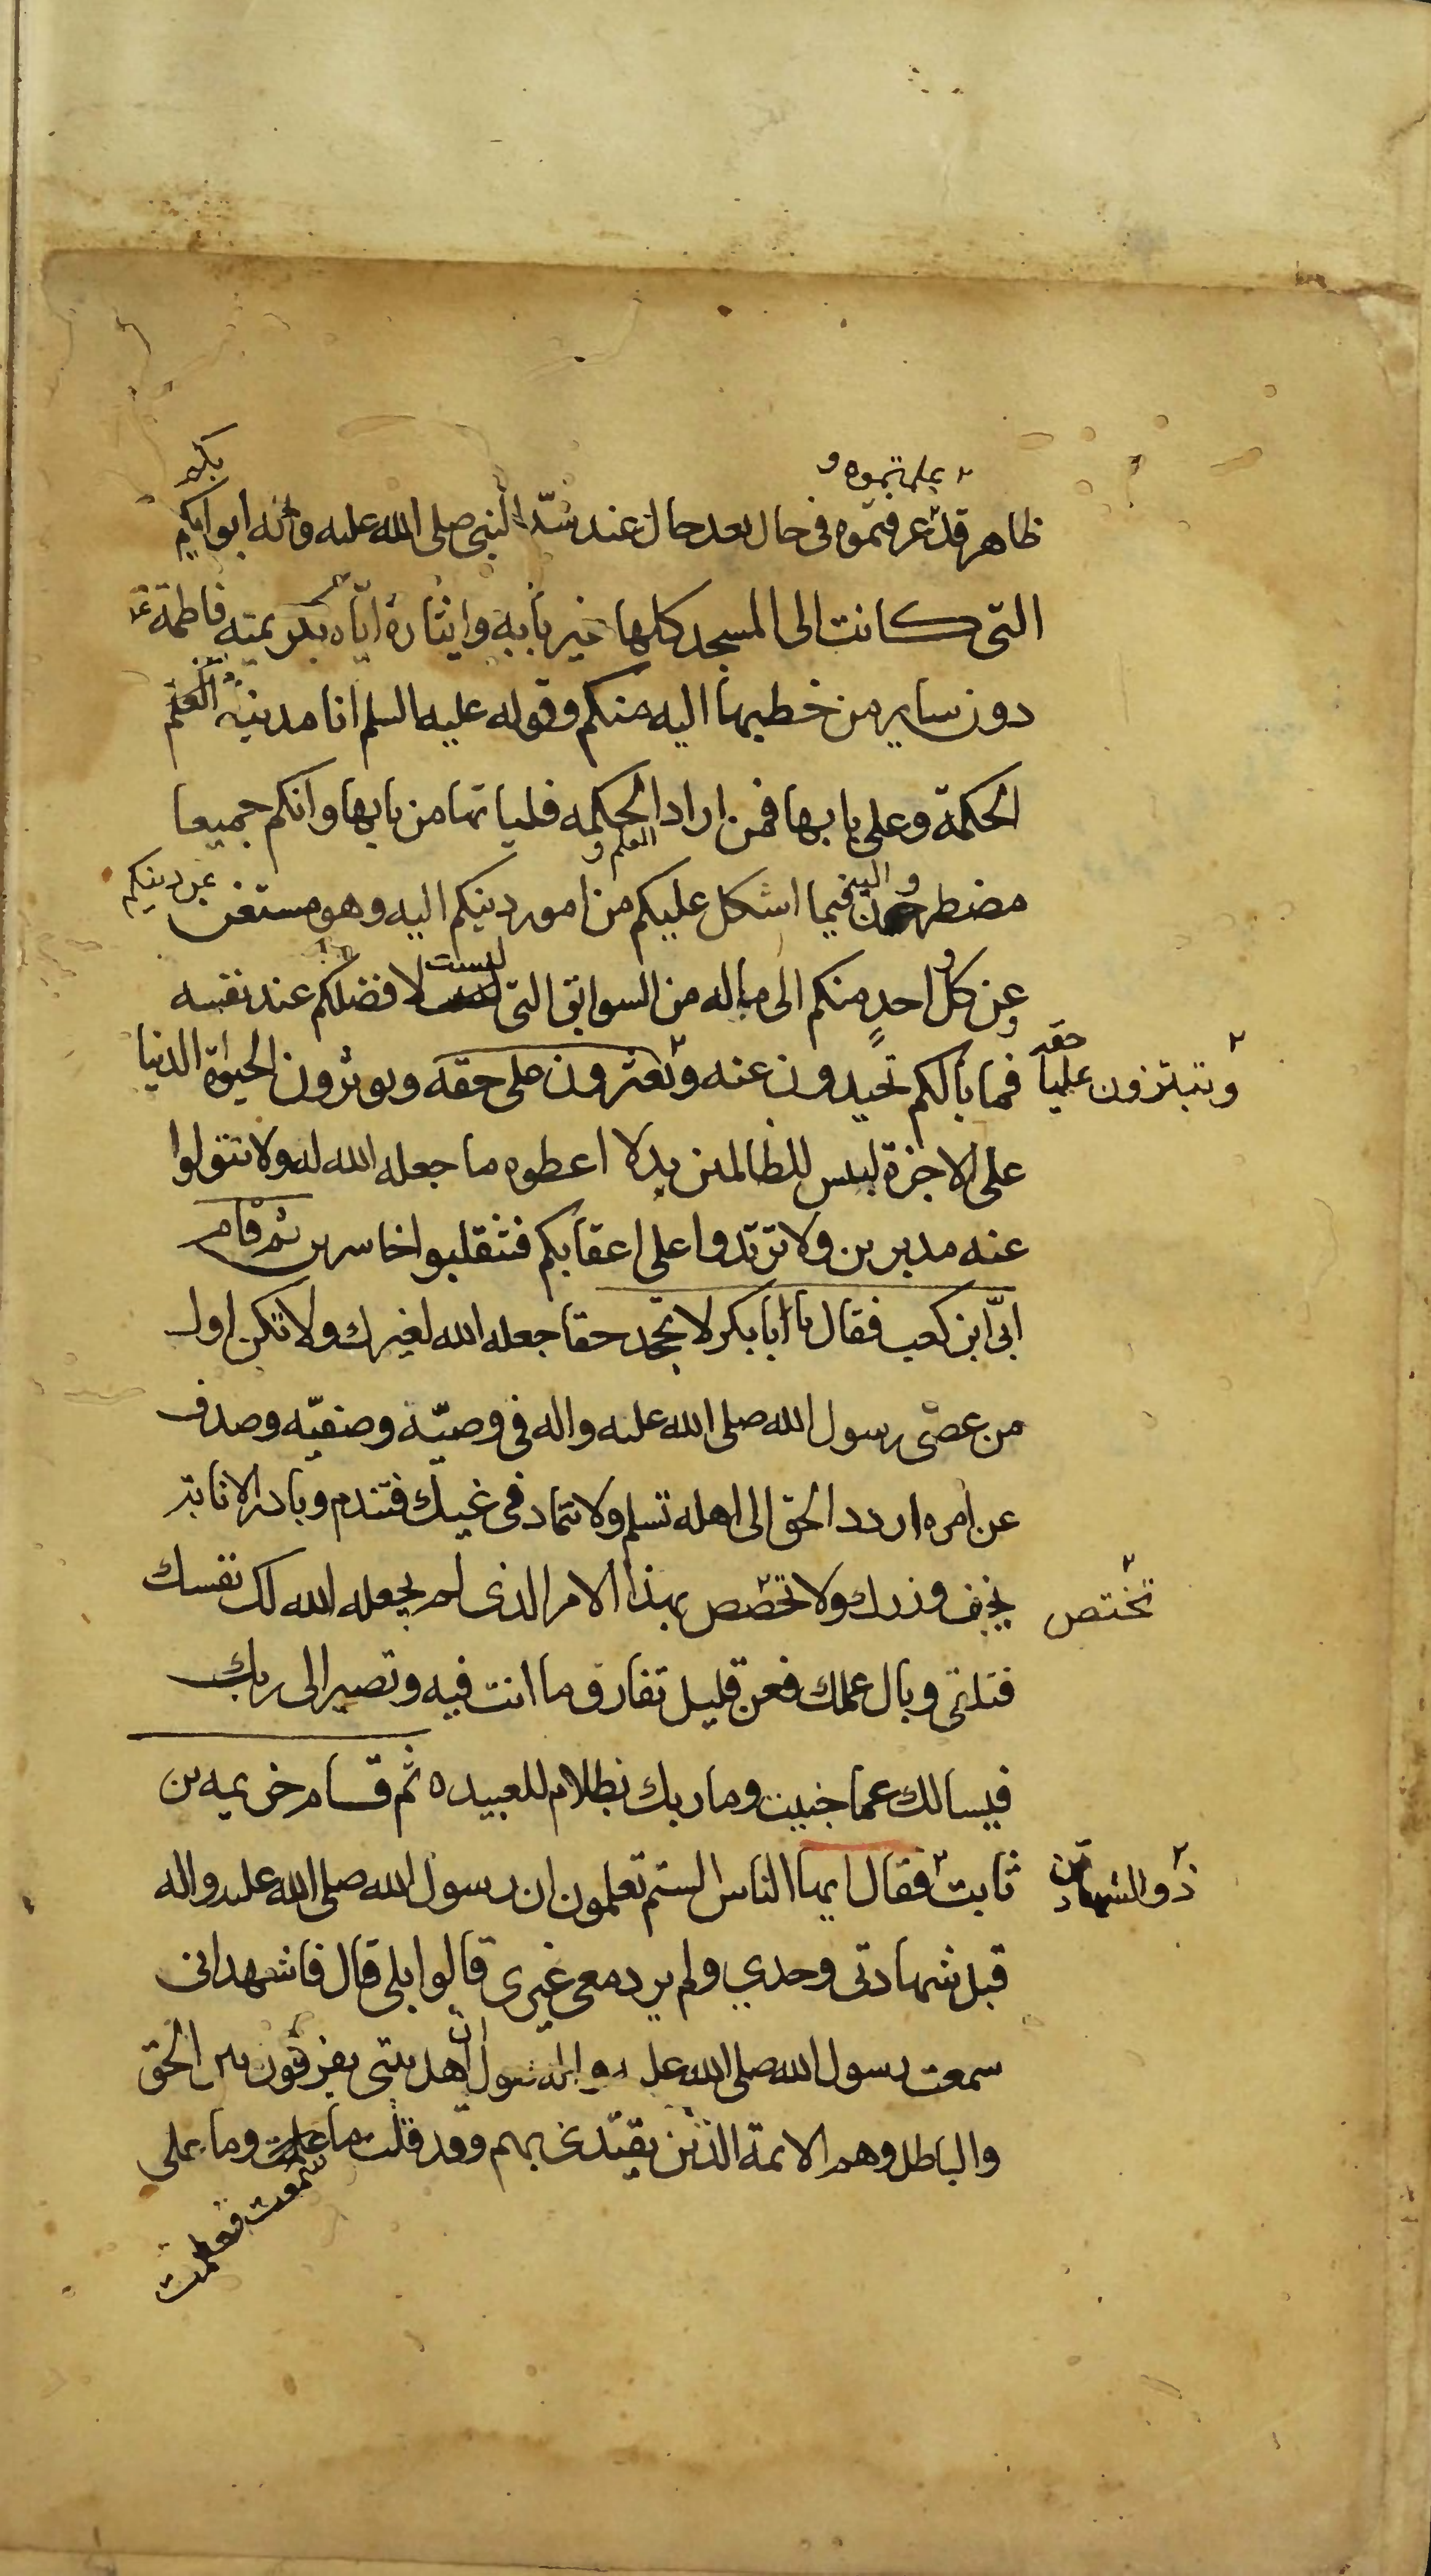 يعلمتموه و
بكم
ظاهر قد عرفتموه فى حال بعد حال عند سدّ النبى صلى الله عليه واله ابوابكم
التى كانت الى المسجد كلها غير بابه وايثاره اياه بكريمته فاطمة ع
دون ساير من خطبها اليه منكم وقوله عليه السلم انا مدينة العلم
الحكمة وعلى بابها فمن اراد الحكمه فلياتها من بابها وانكم جميعا
العلم و
مضطرون فيما اشكل عليكم من امور دينكم اليه وهو مستغن عن دينكم
عن كل احد منكم الى ماله من السوابق التى ليست لافضلكم عند نفسه
فما بالكم تحيدون عنه وتغيرون على حقه وتوثرون الحيوة الدنيا
وتبتزون عليا حقه
على الاخرة لبيس للظالمين بدلا اعطوه ما جعله الله له ولا تتولوا
عنه مدبرين ولا ترتدوا على اعقابكم فتنقلبوا خاسرين ثم قام
ابىّ ابن كعب فقال يا ابا بكر لا تجحد حقا جعله الله لغيرك ولا تكن اول
من عصى رسول الله صلى الله عليه واله فى وصيّه وصفيّه وصدف
عن امره اردد الحق الى اهله تسلم ولا تتماد فى غيك فتندم وبادر الانابة
يخف وزرك ولا تخصص بهذا الامر الذى لم يجعله الله لك نفسك
تختص
فتلقى وبال عملك فعن قليل تفارق ما انت فيه وتصير الى ربك
فيسالك عما جنيت وما ربك بظلام للعبيد ه ثم قام خزيمه بن
ثابت فقال ايها الناس الستم تعلمون ان رسول الله صلى الله عليه واله
ذو الشهادتين
قبل شهادتى وحدي ولم يرد معى غيرى قالوا بلى قال فاشهد انى
سمعت رسول الله صلى الله عليه واله يقول ان اهل بيتى يفرقون بين الحق
والباطل وهم الائمة الذين يقتدى بهم وقد قلت ما علمت وما على
سمعت فعلمت